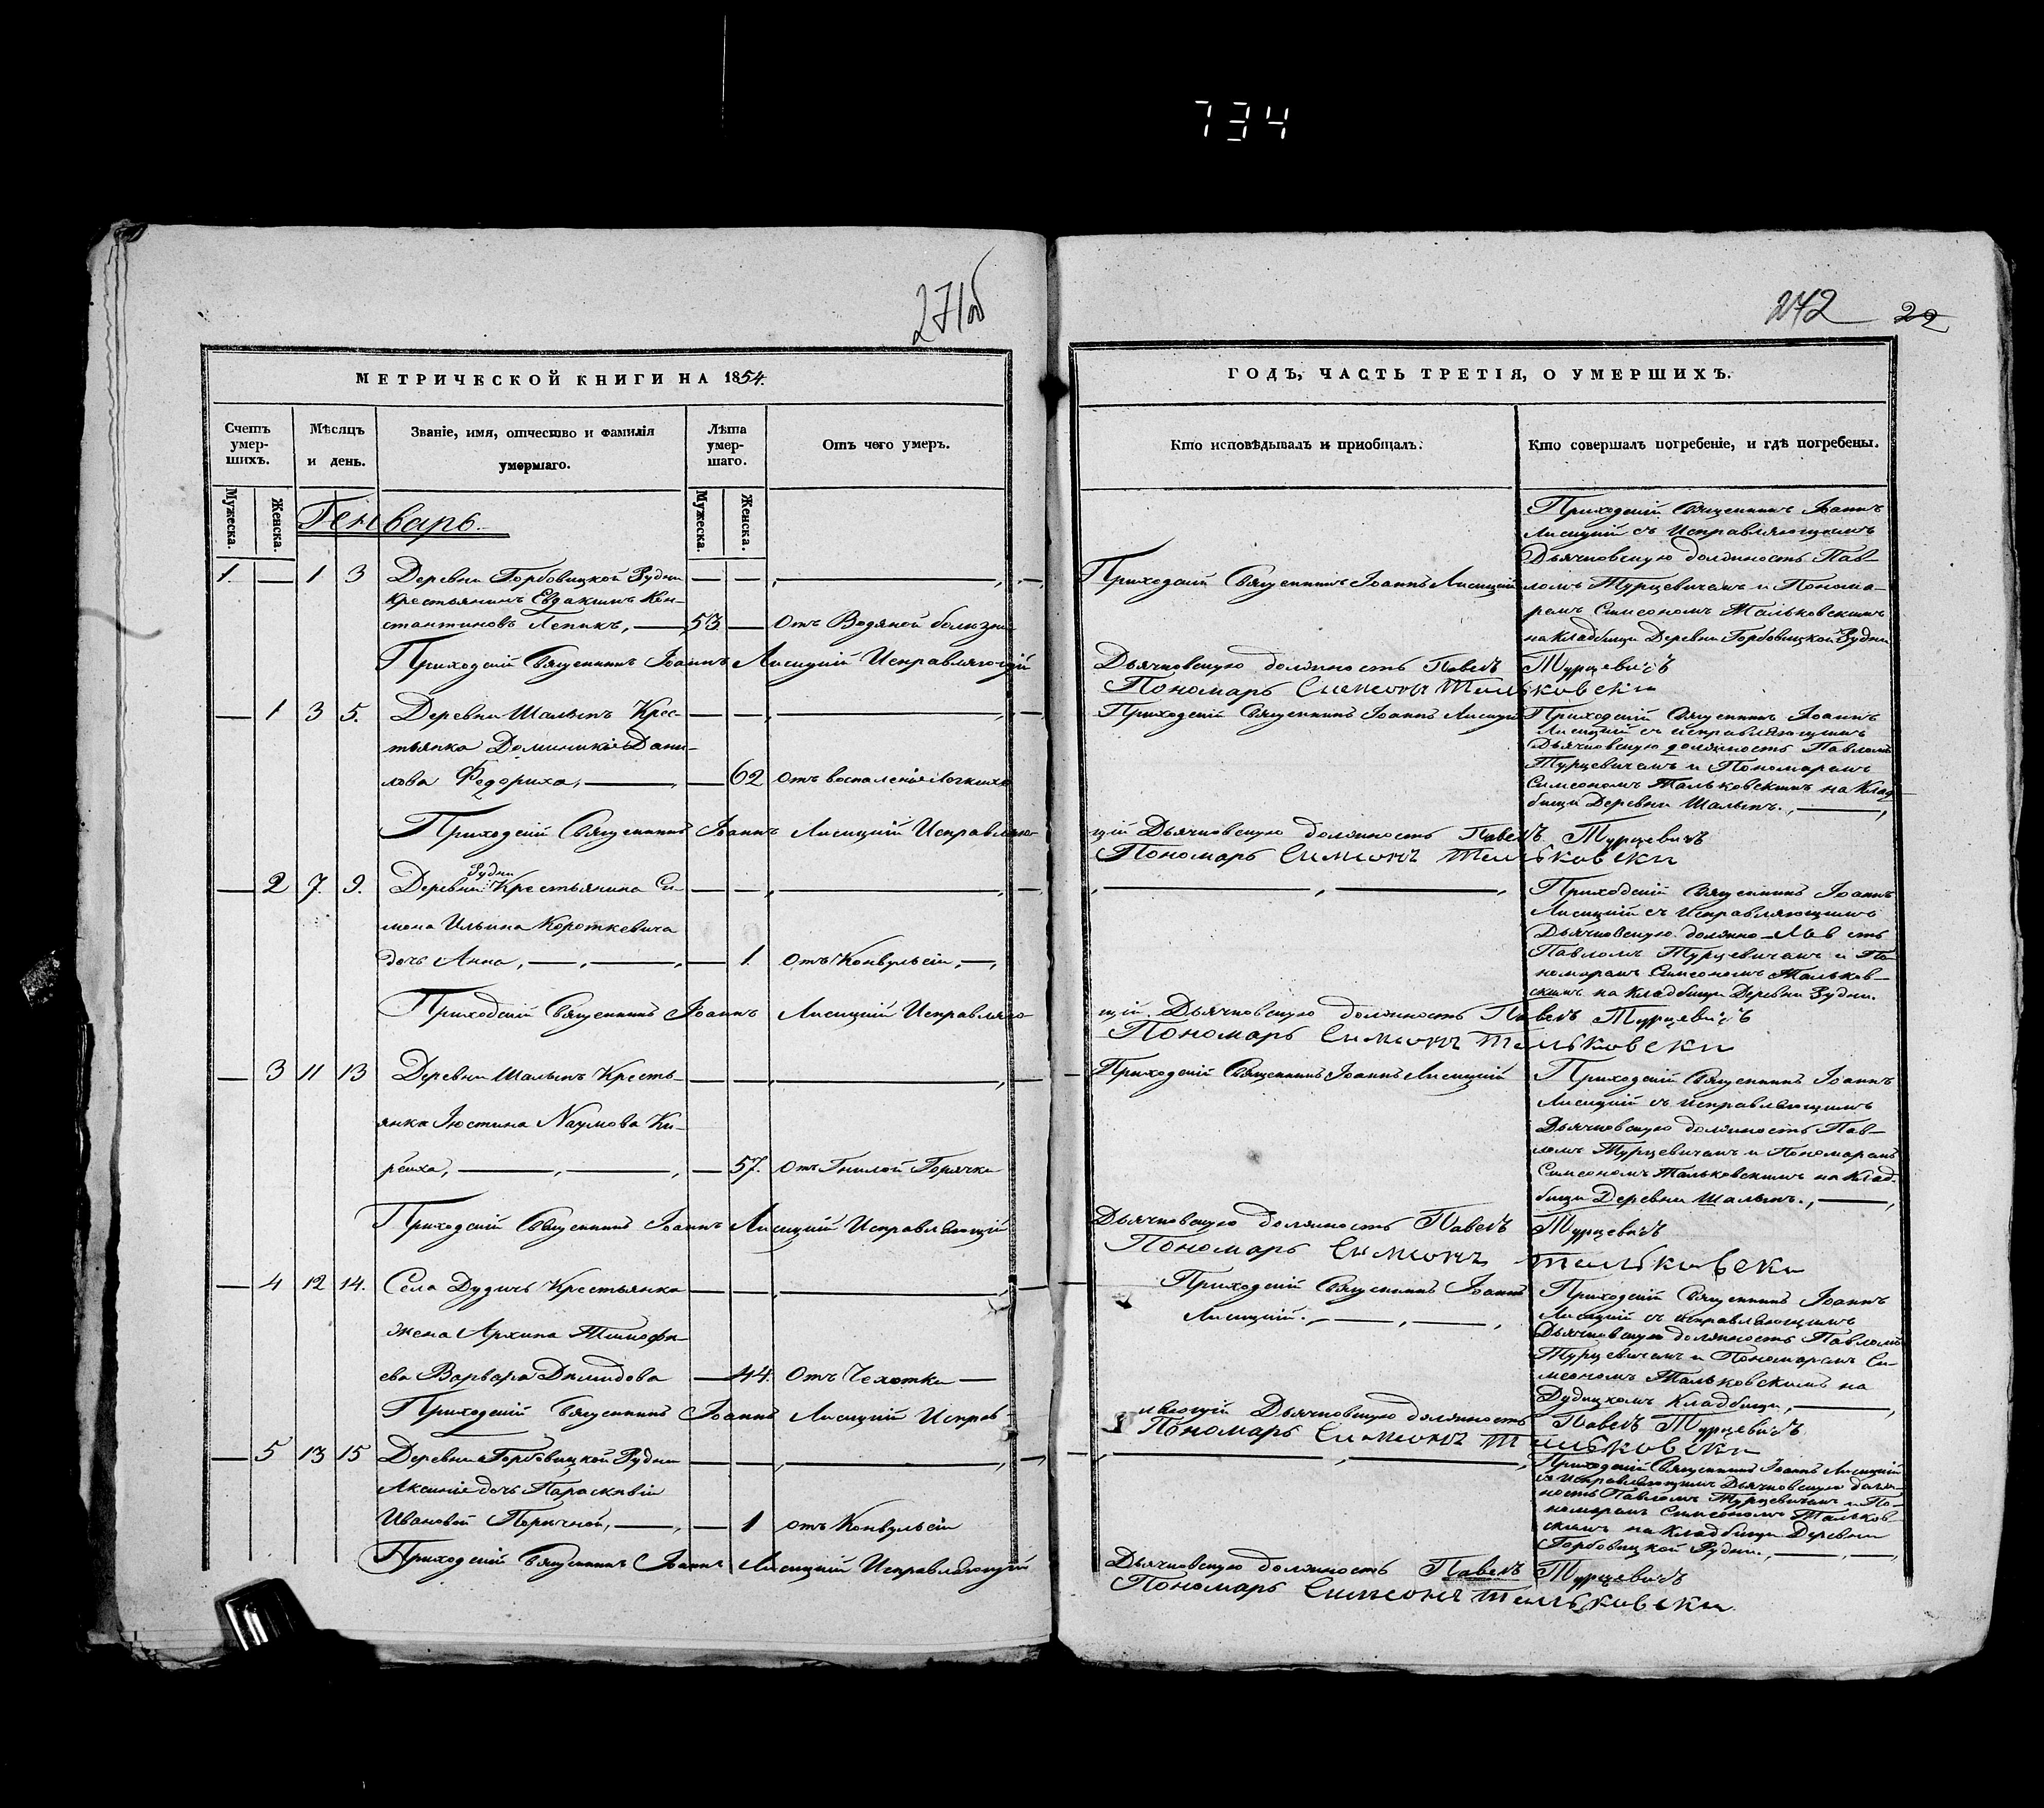 734
271об
242 22
МЕТРИЧЕСКОЙ КНИГИ НА 1854.
Счетъ умер-шихъ.
Мѣсяцъ и день.
Званіе, имя, отчество и фамилія умершаго.
Лѣта умер-шаго.
Отъ чего умеръ.
Мужеска. Женска.
Мужеска. Женска.
Генварь.
1. — 1 3 Деревни Горбовицкой Рудни
крестьянинъ Евдакимъ Кон-
стантиновъ Лепикъ, — 53 — Отъ Водяной болѣзни
Приходскій Священникъ Іоаннъ Лисицкій Исправляющій
— 1 3 5. Деревни Шалынъ Крес-
тьянка Доминикія Дани-
лова Федориха, — 62 отъ воспаленія Легкихъ
Приходскій Священникъ Іоаннъ Лисицкій Исправляю-
— 2 7. 9. Деревни Рудни Крестьянина Си-
мона Ильина Короткевича
дочь Анна, — 1. Отъ Конвульсіи,
Приходскій Священникъ Іоаннъ Лисицкій Исправляю-
— 3 11 13 Деревни Шалынъ Кресть-
янка Іюстина Наумова Ки-
рѣиха, — 57. Отъ Гнилой Горячки
Приходскій Священникъ Іоаннъ Лисицкій Исправляющій
— 4 12 14. Села Дудичъ Крестьянка
жена Архипа Тимофе-
ева Варвара Димидова — 44. Отъ Чехотки —
Приходскій Священникъ Іоаннъ Лисицкій Исправ
— 5 13 15 Деревни Горбовицкой Рудни
Аксинія дочь Параскивіи
Ивановой — 1 отъ Конвульсіи
Приходскій Священникъ Іоаннъ Лисицкій Исправляющій
ГОДЪ, ЧАСТЬ ТРЕТІЯ, О УМЕРШИХЪ.
Кто исповѣдывалъ и приобщалъ.
Кто совершалъ погребеніе, и гдѣ погребены.
Приходскій Священникъ Іоаннъ Лисицкій
Приходскій Священникъ Іоаннъ
Лисицкій съ Исправляющимъ
Дьячковскую должность Пав-
ломъ Турцевичемъ и Понома-
ремъ Симеономъ Мальковскимъ
на Кладбищи Деревни Горбовицкой Рудни
Дьячковскую должность Павелъ Турцевичъ
Пономарь Симеонъ Мальковски
Приходскій Священникъ Іоаннъ Лисицкій
Приходскій Священникъ Іоаннъ
Лисицкій съ исправляющимъ
Дьячковскую должность Павломъ
Турцевичемъ и Пономаремъ
Симеономъ Мальковскимъ на Клад-
бищи Деревни Шалынъ.
щій Дьячковскую должность Павелъ Турцевичъ
Пономарь Симеонъ Мальковски
Приходскій Священникъ Іоаннъ
Лисицкій съ Исправляющимъ
Дьячковскую должно-Пав сть
Павломъ Турцевичемъ и По-
номаремъ Симеономъ Мальков-
скимъ на Кладбищи Деревни Рудни.
щій Дьячковскую должность Павелъ Турцевичъ
Пономарь Симеонъ Мальковски
Приходскій Священникъ Іоаннъ Лисицкій
Приходскій Священникъ Іоаннъ
Лисицкій съ исправляющимъ
Дьячковскую должность Пав-
ломъ Турцевичемъ и Пономаремъ
Симеономъ Мальковскимъ на Клад-
бищи Деревни Шалынъ.,
Дьячковскую должность Павелъ Турцевичъ
Пономарь Симеонъ Мальковски
Приходскій Священникъ Іоаннъ
Лисицкій.
Приходскій Священникъ Іоаннъ
Лисицкій съ исправляющимъ
Дьячковскую должность Павломъ
Турцевичемъ и Пономаремъ Си-
меономъ Мальковскимъ на
Дудицкомъ Кладбищи,
ляющій Дьячковскую должность Павелъ Турцевичъ
Пономарь Симеонъ Мальковски
Приходскій Священникъ Іоаннъ Лисицкій
съ Исправляющимъ Дьячковскую долж-
ность Павломъ Турцевичемъ и По-
номаремъ Симеономъ Мальков-
скимъ на Кладбищи Деревни
Горбовицкой Рудни.,
Дьячковскую должность Павелъ Турцевичъ
Пономарь Симеонъ Мальковски